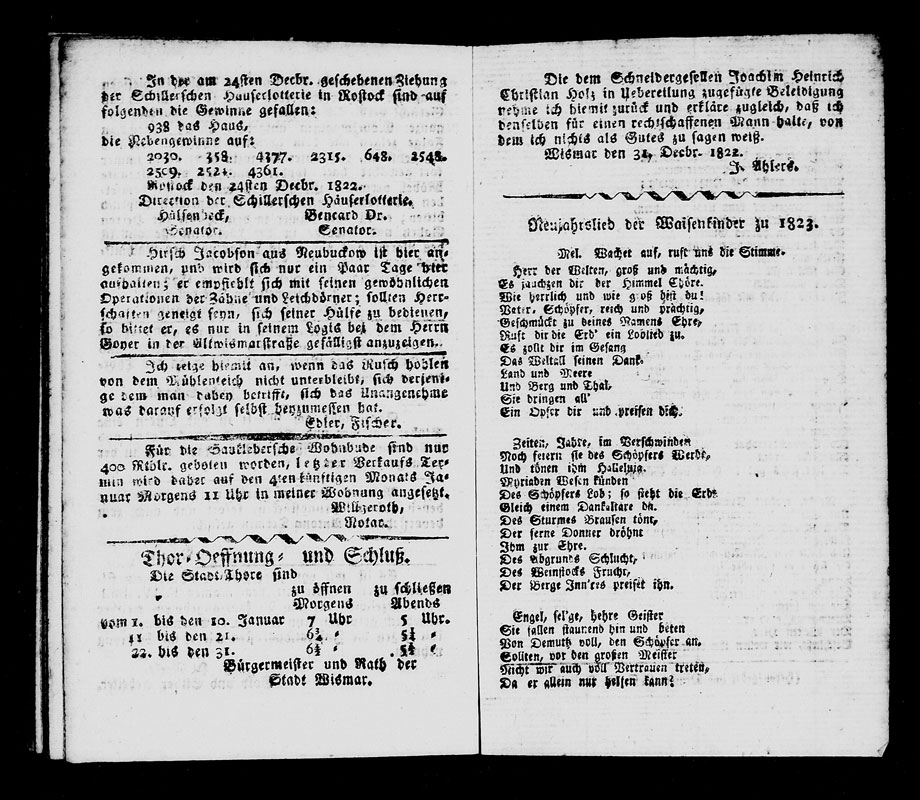 In der am 24sten Decbr. geschebenen Ziehung
der Schillerschen Häuserlotterie in Rostock sind auf
folgenden die Gewinne gefallen:
938 das Haus,
die Nebengewinne auf:
2030. 358. 4377. 2315. 648. 2548.
2509. 2521. 4361.
Rostock den 24sten Decbr. 1822.
Direction der Schillerschen Häuserlotterie.
Hülsenbeck, Bencard Dr.
Senator. Senator.
Hirsch Jacobson aus Neubuckow ist hier an-
gekommen, und wird sich nur ein Paar Tage hier
aufhalten; er empfiehlt sich mit seinen gewöhnlichen
Operationen der Zähne und Leichdörner; sollten Herr-
schaften geneigt seyn, sich seiner Hülfe zu bedienen,
so bittet er, es nur in seinem Logis bei dem Herrn
Goyer in der Altwismarstraße gefälligst anzuzeigen.
Ich zeige hiemit an, wenn das Rusch hohlen
von dem Mühlenteich nicht unterbleibt, sich derjeni-
ge dem man dabey betrifft, sich das Unangenehme
was darauf erfolgt selbst beyzumessen hat.
Edler, Fischer.
Für die Wohnbude sind nur
400 Rthlr. geboten worden, letzter Verkaufs Ter-
min wird daher auf den 4ten künftigen Monats Ja-
nuar Morgens 11 Uhr in meiner Wohnung angesetzt.
Willgeroth,
Notar.
Thor-Oeffnung- und Schluß.
Die Stadt Thore sind
zu öffnen zu schließen
Morgens Abends
vom 1. bis den 10. Januar 7 Uhr 5 Uhr.
11 bis den 21. 6¾ " 5¼ "
22. bis den 31. 6½ " 5½ "
Bürgermeister und Rath der
Stadt Wismar.
Die dem Schneidergesellen Joachim Heinrich
Christian Holz in Uebereilung zugefügte Beleidigung
nehme ich hiemit zurück und erkläre zugleich, daß ich
denselben für einen rechtschaffenen Mann halte, von
dem ich nichts als Gutes zu sagen weiß.
Wismar den 31. Decbr. 1822.
J. Ahlers.
Neujahrslied der Waisenkinder zu 1823.
Mel. Wachet auf, ruft uns die Stimme.
Herr der Welten, groß und mächtig,
Es jauchzen dir der Himmel Chöre.
Wie herrlich und wie groß bist du!
Vater, Schöpfer, reich und prächtig,
Geschmückt zu deines Namens Ehre,
Ruft dir die Erd' ein Loblied zu.
Es zollt dir im Gesang
Das Weltall seinen Dank.
Land und Meere
Und Berg und Thal,
Sie bringen all'
Ein Opfer dir und preisen dich.
Zeiten, Jahre, im Verschwinden
Noch feiern sie des Schöpfers Werde,
Und tönen ihm Halleluja.
Myriaden Wesen künden
Des Schöpfers Lob; so steht die Erde
Gleich einem Dankaltare da.
Des Sturmes Brausen tönt,
Der ferne Donner dröhnt
Ihm zur Ehre.
Des Abgrunds Schlucht,
Des Weinstocks Frucht,
Der Berge Inn'res preiset ihn.
Engel, sel'ge, hehre Geister
Sie fallen staunend hin und beten
Von Demuth voll, den Schöpfer an.
Sollten, vor den großen Meister
Nicht wir auch voll Vertrauen treten,
Da er allein nur helfen kann?